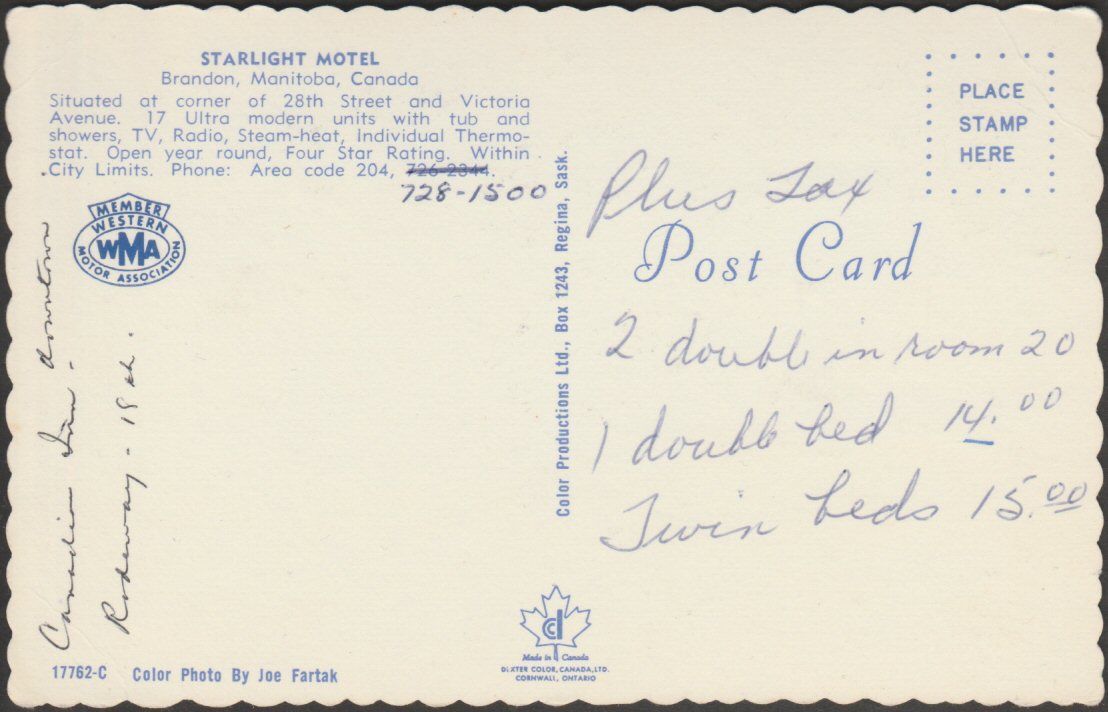 STARLIGHT MOTEL
Brandon, Manitoba, Canada
Situated at corner of 28th Street and Victoria
Avenue. 17 Ultra modern units with tub and
showers, TV, Radio, Steam-heat, Individual Thermo-
stat. Open year round, Four Star Rating. Within
City Limits. Phone: Area code 204, 726-2344.
728-1500
MEMBER
WESTERN
WMA
MOTOR ASSOCIATION
Canadian Inn - downtown
Rodeway - 18th.
17762-C Color Photo By Joe Fartak
Color Productions Ltd., Box 1243, Regina, Sask.
PLACE
STAMP
HERE
Plus Tax
Post Card
2 double in room 20
1 double bed 14.00
Twin beds 15.00
Made in Canada
DEXTER COLOR, CANADA, LTD.
CORNWALL, ONTARIO